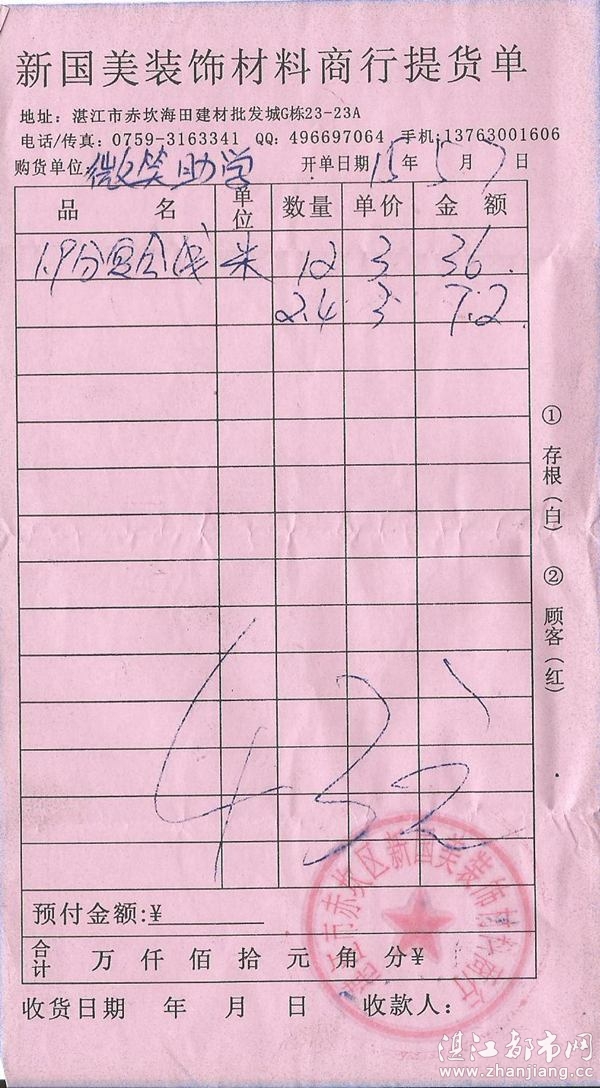 新国美装饰材料商行提货单
地址：湛江市赤坎海田建材批发城G栋23-23A
电话/传真：0759-3163341 QQ：496697064 手机：13763001606
购货单位 微笑助学 开单日期 15 年 5 月 7 日
品 名 单位 数量 单价 金 额
1.9分 米 12 3 36
2.4 3 7.2
43.2
① 存根（白） ② 顾客（红）
预付金额：¥
合计 万 仟 佰 拾 元 角 分 ¥
市赤坎区新国美装饰材料商行
收货日期 年 月 日 收款人：
湛江都市网
www.zhanjiang.cc